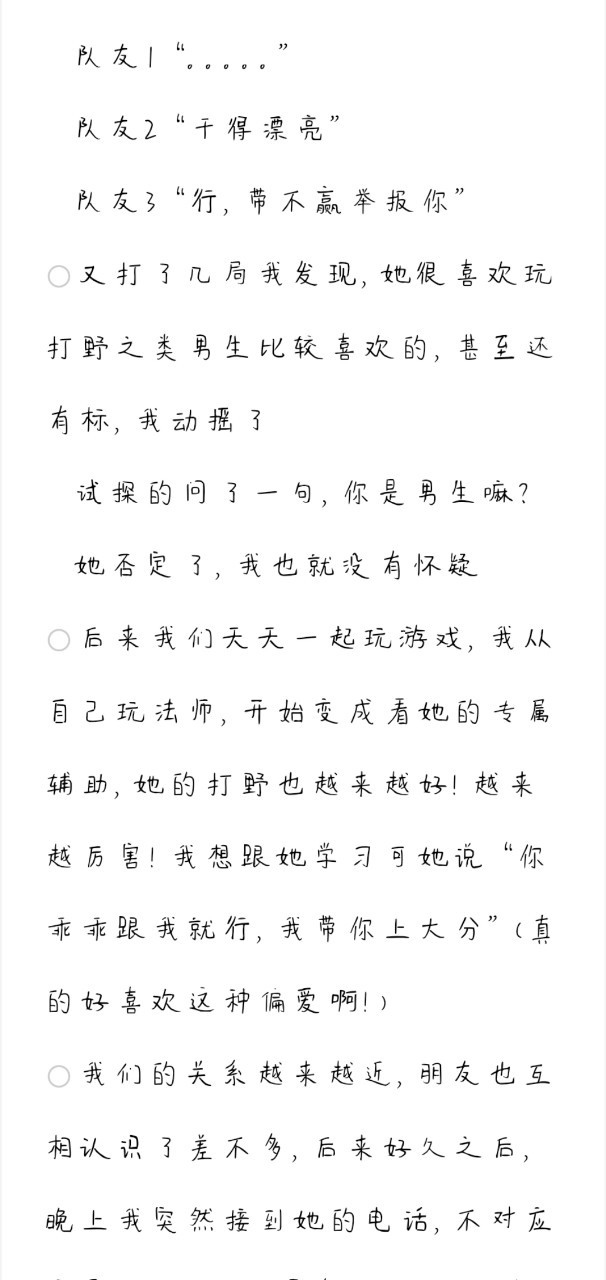 队友1“。。。。。”
队友2“干得漂亮”
队友3“行,带不赢举报你”
又打了几局我发现,她很喜欢玩
打野之类男生比较喜欢的,甚至还
有标,我动摇了
试探的问了一句,你是男生嘛?
她否定了,我也就没有怀疑
后来我们天天一起玩游戏,我从
自己玩法师,开始变成看她的专属
辅助,她的打野也越来越好!越来
越厉害!我想跟她学习可她说“你
乖乖跟我就行,我带你上大分”(真
的好喜欢这种偏爱啊!)
我们的关系越来越近,朋友也互
相认识了差不多,后来好久之后,
晚上我突然接到她的电话,不对应